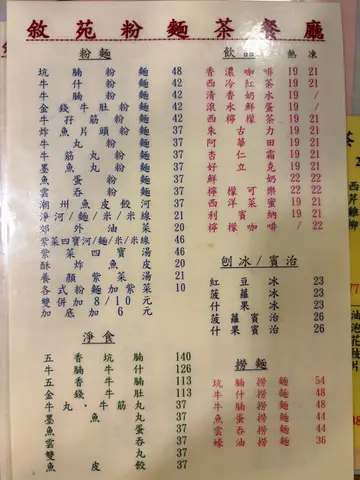 敘苑粉麵茶餐廳
粉麵
坑腩粉麵 48
牛什粉麵 42
牛腩粉麵 42
金錢牛肚粉麵 42
牛孖筋粉麵 42
炸魚片頭粉麵 37
牛丸粉麵 37
牛筋丸粉麵 37
墨魚丸粉麵 37
魚蛋粉麵 37
雲吞粉麵 37
潮州魚皮餃河 37
淨河/麵/米/米線 21
郊外油菜 20
紫菜四寶河/麵/米/米線 46
紫菜四寶湯 46
酥炸魚皮 20
養顏紫菜湯 21
各式粉麵加紫菜 10
雙併加8/10元
加底加6元
淨食
五香坑腩 140
牛腩牛什 126
五香牛腩 113
金錢牛肚 113
牛丸、牛筋丸 37
墨魚丸 37
魚蛋 37
雲吞 37
雙丸 37
魚皮餃 37
飲品 熱 凍
香濃咖啡 19 21
西冷紅茶 19 21
清香奶水 19 /
滾水鮮蛋 19 /
西檸檬茶 19 21
朱古力 19 21
阿華田 19 21
杏仁霜 19 21
好立克 19 21
鮮奶 22 22
檸檬可樂 22 22
西洋菜蜜 19 21
利賓納 19 21
檸檬咖啡 / 22
刨冰/賓治
紅豆冰 23
菠蘿冰 23
什果冰 23
菠蘿賓治 26
什果賓治 26
撈麵
坑腩撈麵 54
牛腩撈麵 48
牛什撈麵 48
魚蛋撈麵 44
雲吞撈麵 44
蠔油撈麵 36